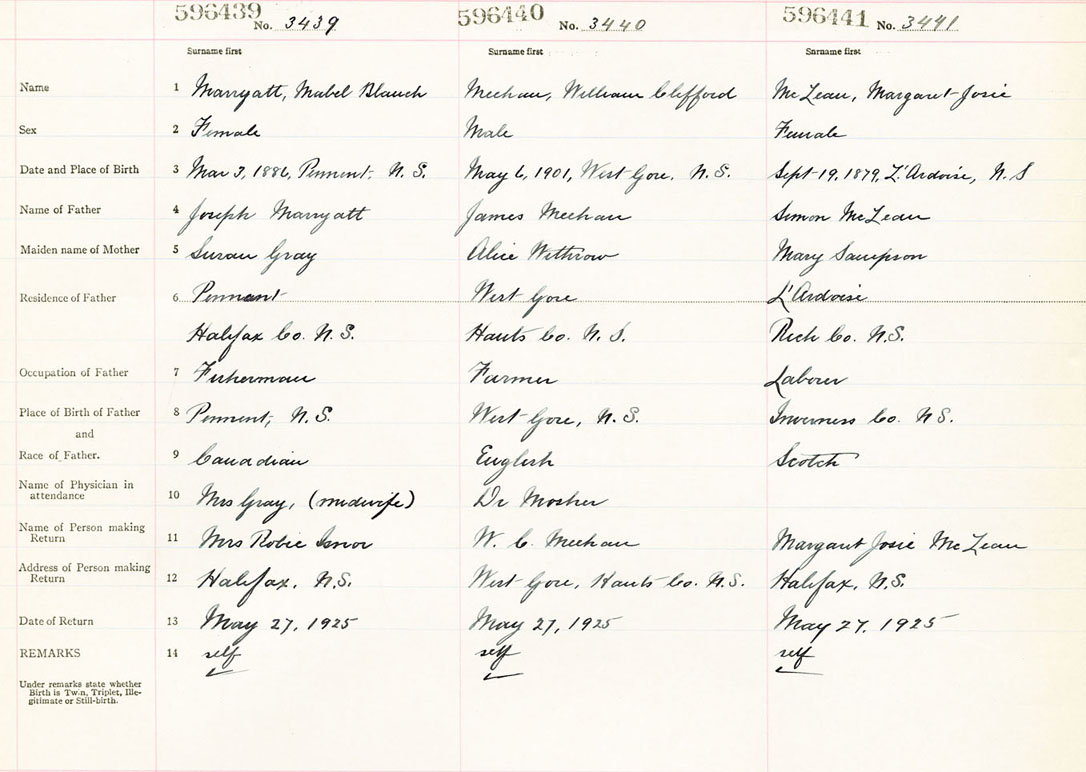 596439 No. 3439 596440 No. 3440 596441 No. 3441
Surname first Surname first Surname first
Name 1 Marryatt, Mabel Blanch Meehan, William Clifford McLean, Margaret Josie
Sex 2 Female Male Female
Date and Place of Birth 3 Mar 3, 1886, Pennent, N.S. May 6, 1901, West Gore, N.S. Sept 19, 1879, L'Ardoise, N.S
Name of Father 4 Joseph Marryatt James Meehan Simon McLean
Maiden name of Mother 5 Susan Gray Alice Withrow Mary Sampson
Residence of Father 6 Pennant West Gore L'Ardoise
Halifax Co. N.S. Hants Co. N.S. Rich Co. N.S.
Occupation of Father 7 Fisherman Farmer Laborer
Place of Birth of Father 8 Pennent, N.S. West Gore, N.S. Inverness Co. N.S.
and
Race of Father. 9 Canadian English Scotch
Name of Physician in
attendance 10 Mrs Gray, (midwife) Dr Mosher
Name of Person making
Return 11 Mrs Robie Isnor W. C. Meehan Margaret Josie McLean
Address of Person making
Return 12 Halifax, N.S. West Gore, Hants Co. N.S. Halifax, N.S.
Date of Return 13 May 27, 1925 May 27, 1925 May 27, 1925
REMARKS 14 self self self
Under remarks state whether
Birth is Twin, Triplet, Ille-
gitimate or Still-birth.